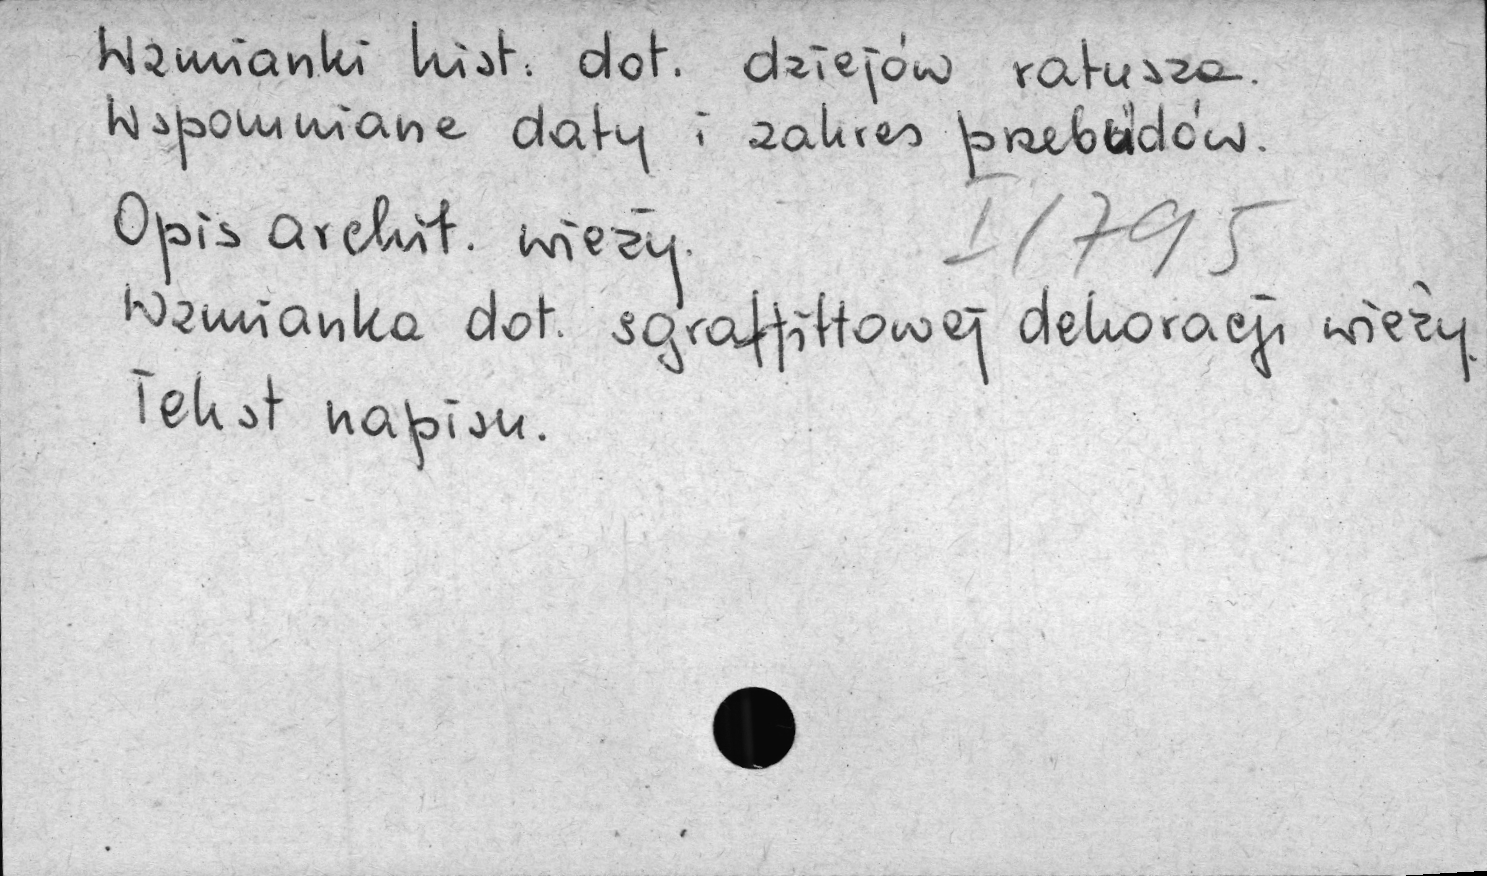 Wzmianki hist. dot. dziejów ratusza.
Wspomniane daty i zakres przebudów.
Opis archit. wieży.
I/795
Wzmianka dot. sgraffittowej dekoracji wieży.
Tekst napisu.